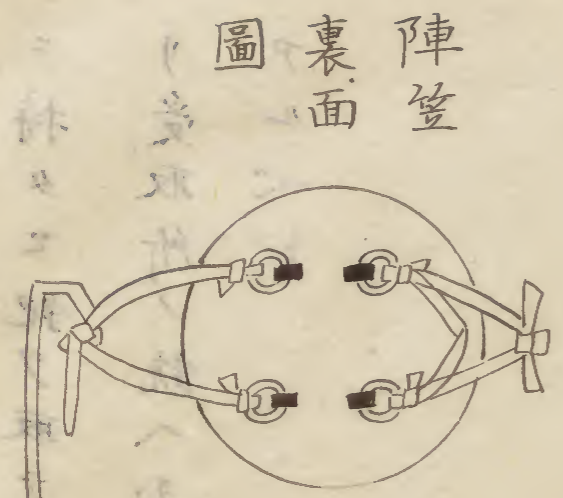 陣笠
裏面
圖